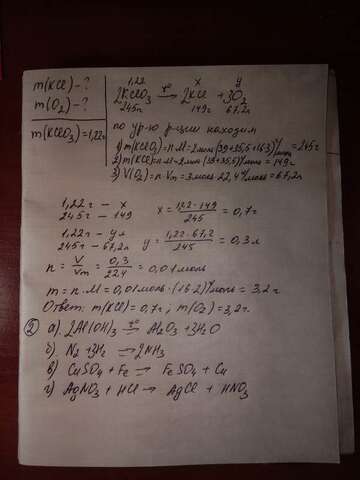 m(KCl) - ?
m(O₂) - ?
m(KClO₃) = 1,22г
1,22 x y
2KClO₃ →t° 2KCl + 3O₂
245г 149г 67,2л
по ур-ю р-ции находим
1) m(KClO₃) = n·M = 2моль (39+35,5+16·3) г/моль = 245г
2) m(KCl) = n·M = 2моль (39+35,5) г/моль = 149г
3) V(O₂) = n·Vm = 3моль 22,4 л/моль = 67,2л
1,22г - x
245г - 149
x = 1,22·149/245 = 0,7г
1,22г - y л
245г - 67,2л
y = 1,22·67,2/245 = 0,3л
n = V/Vm = 0,3/22,4 = 0,01моль
m = n·M = 0,01моль·(16·2) г/моль = 3,2г
Ответ: m(KCl) = 0,7г; m(O₂) = 3,2г.
② а). 2Al(OH)₃ →t° Al₂O₃ + 3H₂O
б). N₂ + 3H₂ ⇌ 2NH₃
в) CuSO₄ + Fe → FeSO₄ + Cu
г) AgNO₃ + HCl → AgCl + HNO₃